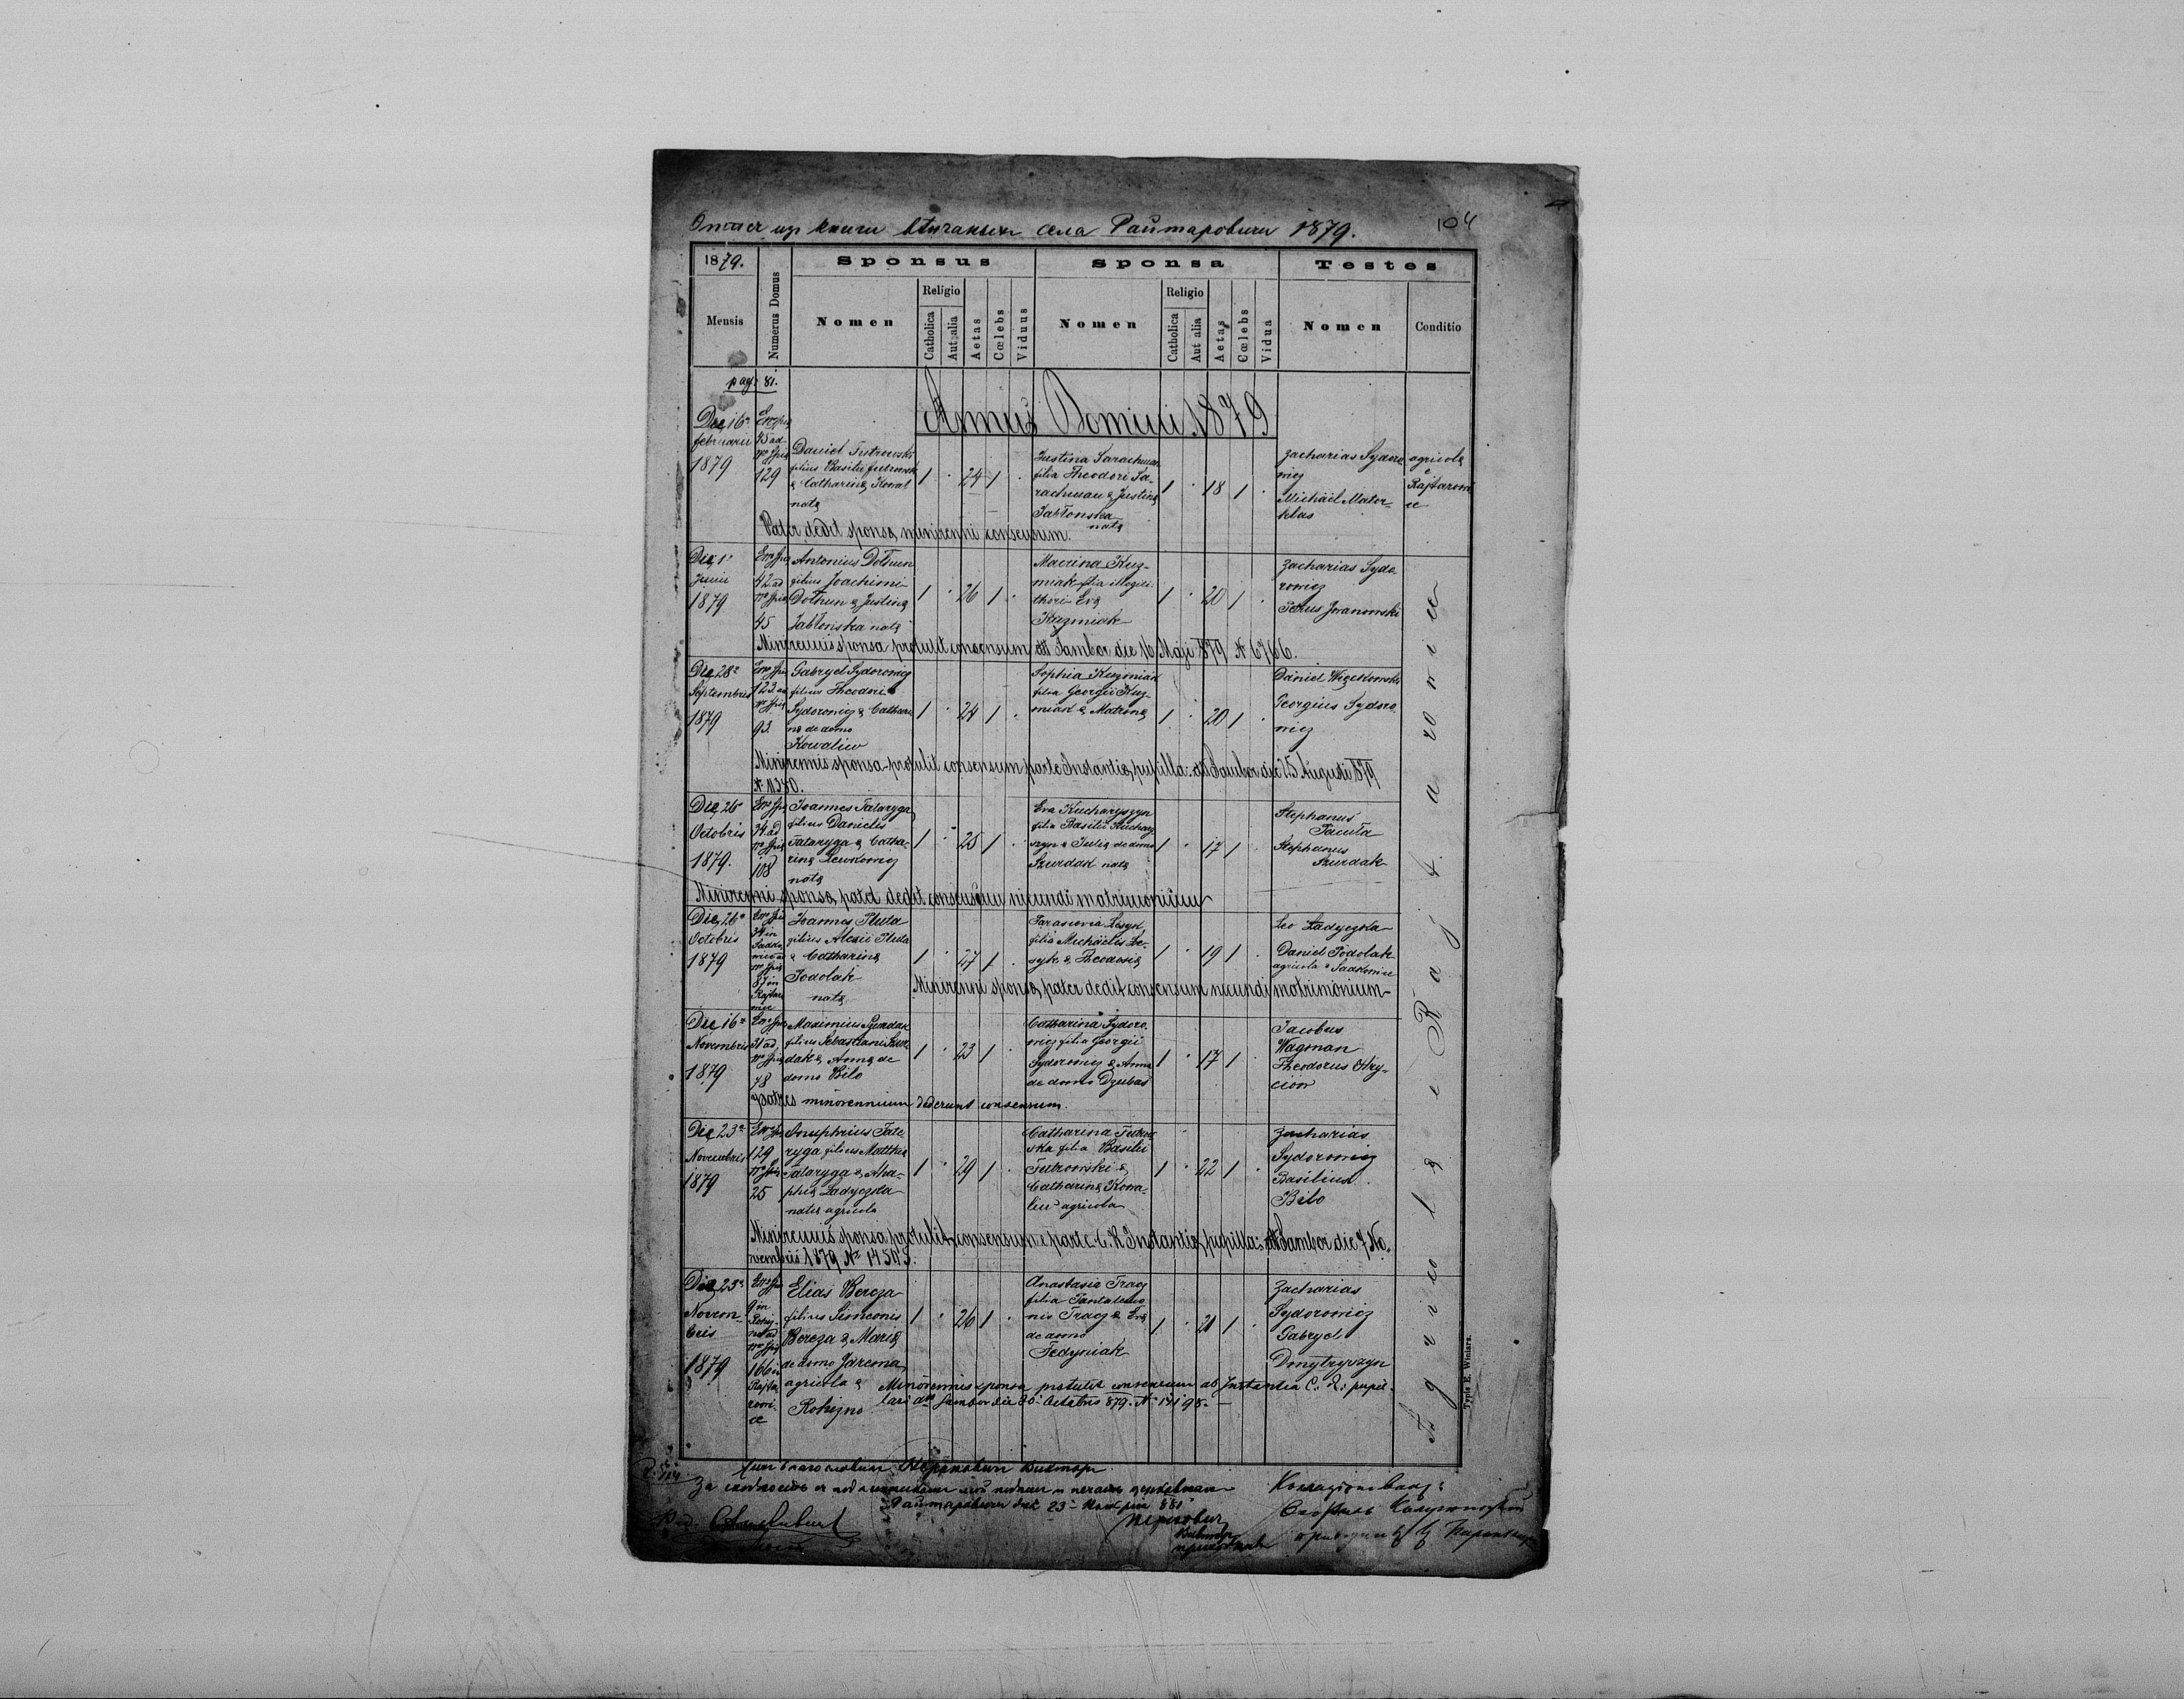 Опись изъ книги вѣнчаныхъ села Райтаровичи 1879.
104
1879.
Sponsus
Sponsa
Testes
Mensis
Numerus Domus
Nomen
Religio
Catholica
Aut alia
Aetas
Cœlebs
Viduus
Nomen
Religio
Catholica
Aut alia
Aetas
Cœlebs
Vidua
Nomen
Conditio
pag. 81.
Annus Domini 1879
Die 16a
februarii
1879
45 ad
129
Daniel Futrowski
filius Basilii Futrowski
& Catharina Kowal
nata
1 · 24 1 ·
Justina Sarachman
filia Theodori Sa-
rachman & Justina
Jabłonska
nata
1 · 18 1 ·
Zacharias Sydoro
wicz
Michaël Mator-
klas
agricola
e
Rajtarowi
ce
Pater dedit sponsa minorenni consensum.
Die 1a
Junii
1879
42 ad
45
Antonius Dołhun
filius Joachimi
Dołhun & Justina
Jabłonska nata
1 · 26 1 ·
Macrina Kuz-
miak filia illegiti-
thori Eva
Kuzmiak
1 · 20 1 ·
Zacharias Sydo
rowicz
Petrus Iwanowski
Minorennis sponsa protulit consensum ddt Sambor die 10 Maji 879 N 6766.
Die 28a
Septembris
1879
123 ad
93.
Gabryel Sydorowicz
filius Theodori
Sydorowicz & Cathari
na de domo
Kowaliw
1 · 24 1 ·
Sophia Kuzmiak
filia Georgii Kuz-
miak & Matrona
1 · 20 1 ·
Daniel Więckowski
Georgius Sydoro
wicz
Minorennis sponsa protulit consensum parte Instantia pupilla: ddt Sambor die 15 Augusti 879
N 11380.
Die 26a
Octobris
1879.
34 ad
108
Joannes Tataryga
filius Danielis
Tataryga & Catha-
rina Lewkowicz
nata
1 · 25 1 ·
Eva Kucharyszyn
filia Basilii Kuchary
szyn & Julia de domo
Szurdak nata
1 · 17 1 ·
Stephanus
Pacuła
Stephanus
Szurdak
Minorenni sponsa pater dedit consensum nieundi matrimonium
Die 26a
Octobris
1879
87 in
Rajtaro
wice
Joannes Pluta
filius Alexii Pluta
& Catharina
Podolak
nata
1 · 27 1 ·
Parascevia Lesyk
filia Michaëlis Le-
syk & Theodosia
1 · 19 1 ·
Leo Ładyczka
Daniel Podolak
agricola e Sadkowice
Minorenni sponsa pater dedit consensum nieundi matrimonium
Die 16a
Novembris
1879
31 ad
78
Maximius Szurdak
filius Sebastiani Szur
dak & Anna de
domo Bilo
1 · 23 1 ·
Catharina Sydoro
wicz filia Georgii
Sydorowicz & Anna
de domo Dzubas
1 · 17 1 ·
Jacobus
Wagman
Theodorus Hry-
ciow
Patres minorennium dederunt consensum.
Die 23a
Novembris
1879
129
25
Onuphrius Tata
ryga filius Matthia
Tataryga & Aha-
phia Ładyczka
natus agricola
1 · 29 1 ·
Catharina Futrow
ska filia Basilii
Futrowski &
Catharina Kowa-
liw agricola
1 · 22 1 ·
Zacharias
Sydorowicz
Basilius
Bilo
Minorennis sponsa protulit consensum e parte C. R. Instantia pupilla: ddt Sambor die 7 No-
vembris 1879 Nr 14545.
Die 23a
Novem-
bris
1879
9 in
166 in
Rajta
rowi-
ce
Elias Bereza
filius Simeonis
Bereza & Maria
de domo Jarema
agricola e
Rohizno
1 · 26 1 ·
Anastasia Tracz
filia Pantalemo
nis Tracz & Eva
de domo
Fedyniak
1 · 21 1 ·
Zacharias
Sydorowicz
Gabryel
Dmytryszyn
Minorennis sponsa protulit consensum ab Instantia C. R. pupil-
lari ddt Sambor die 30 Octobris 879. N 14198.
Agricola e Rajtarowice
Typis E. Winiarz.
Райтаровичи дня 23
881